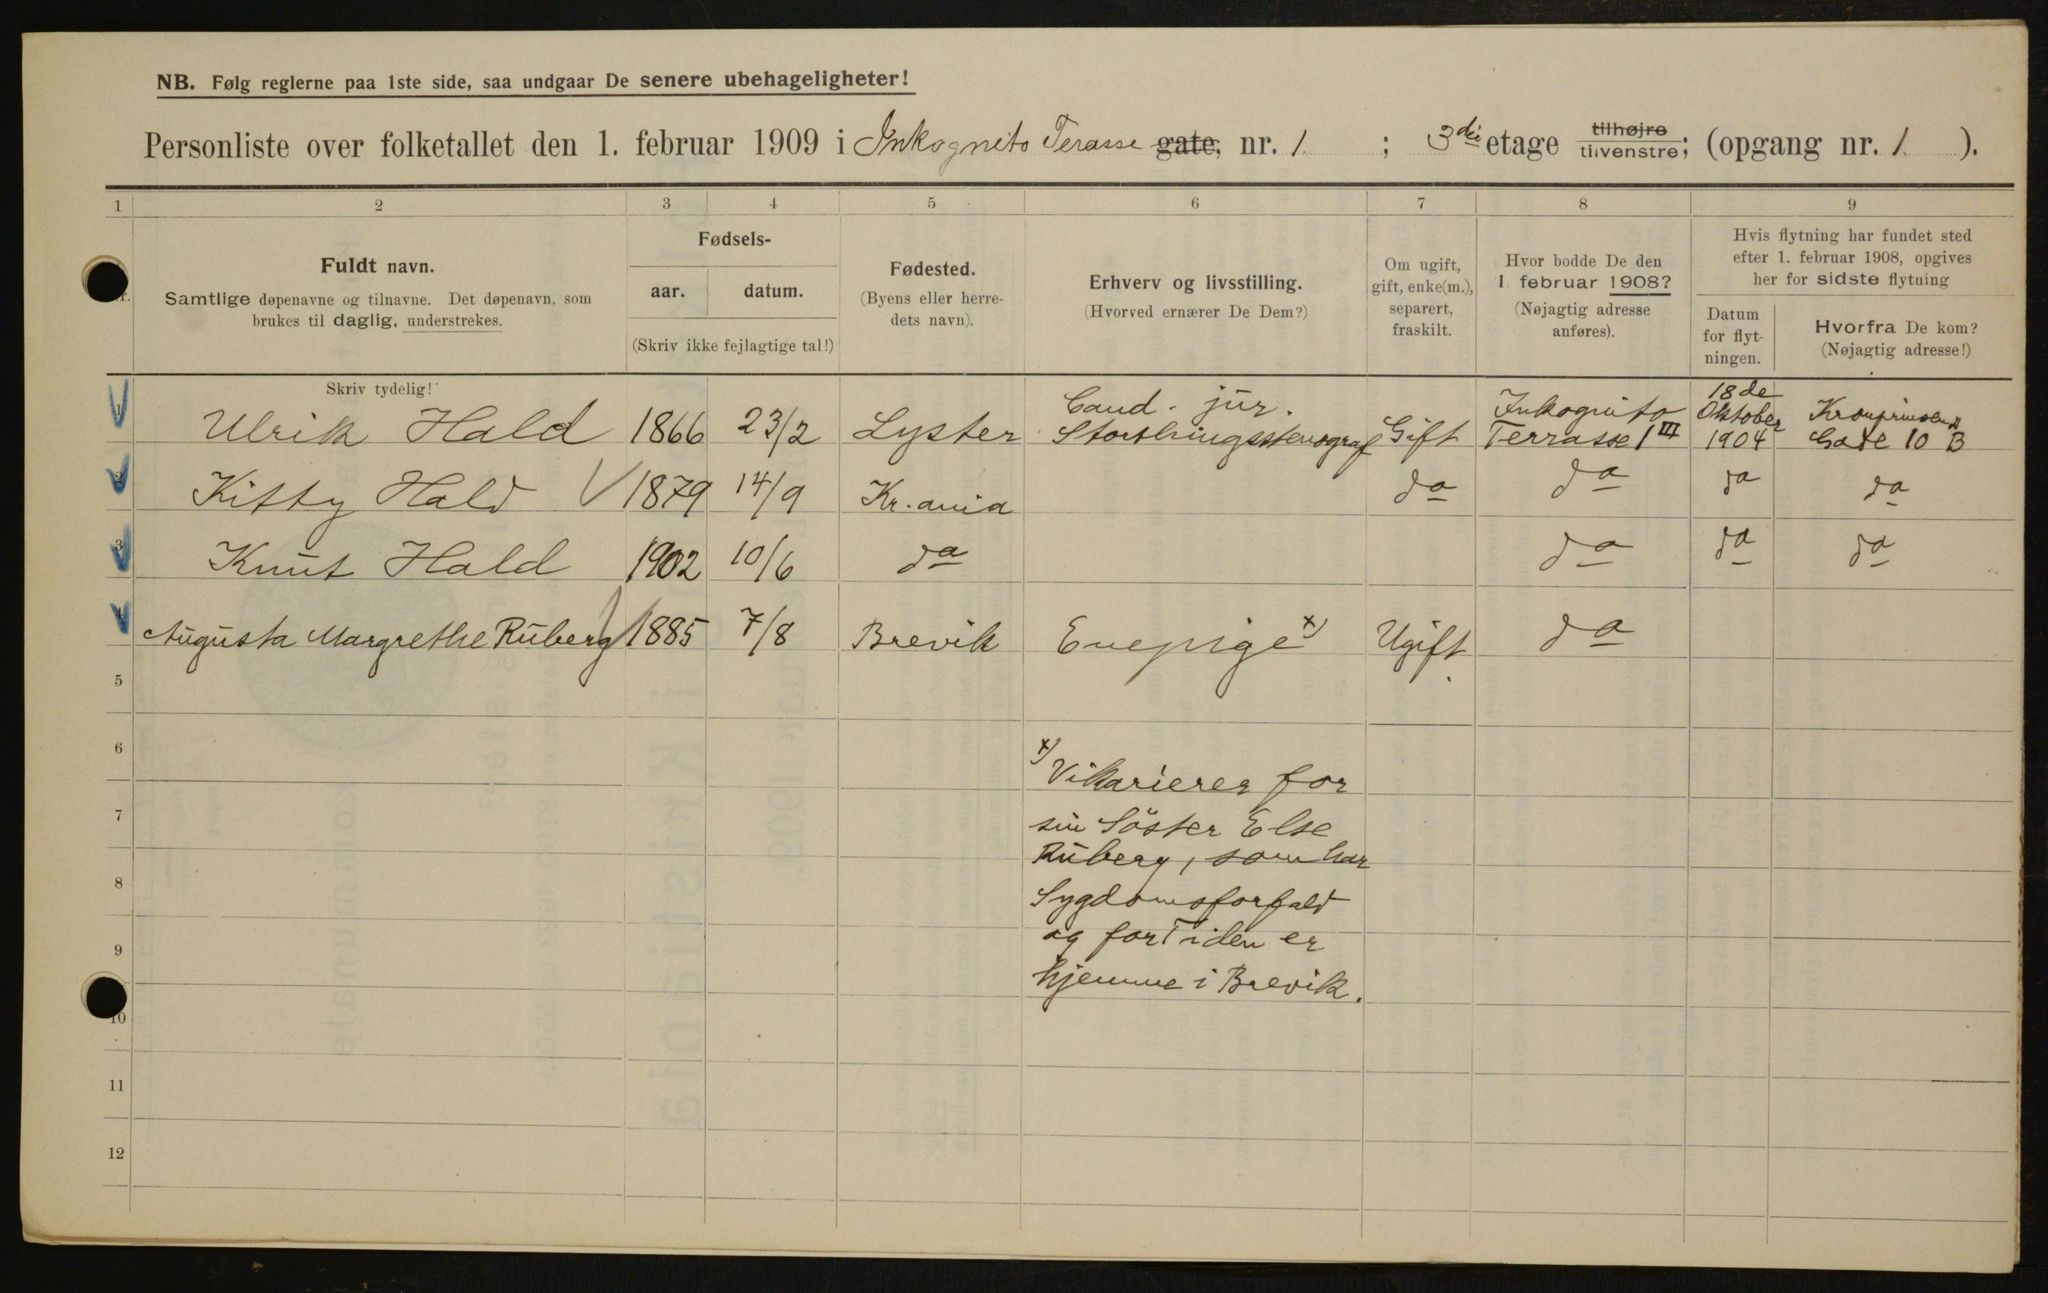 NB. Følg reglerne paa 1ste side, saa undgaar De senere ubehageligheter!
Personliste over folketallet den 1. februar 1909 i Inkognito Terasse gate, nr. 1 ; 3die etage tilhøjre tilvenstre; (opgang nr. 1. ).
1 2 3 4 5 6 7 8 9
Fuldt navn.
Samtlige døpenavne og tilnavne. Det døpenavn, som
brukes til daglig, understrekes.
Skriv tydelig!
Fødsels-
aar. datum.
(Skriv ikke fejlagtige tal!)
Fødested.
(Byens eller herre-
dets navn).
Erhverv og livsstilling.
(Hvorved ernærer De Dem?)
Om ugift,
gift, enke(m.),
separert,
fraskilt.
Hvor bodde De den
1. februar 1908?
(Nøjagtig adresse
anføres).
Hvis flytning har fundet sted
efter 1. februar 1908, opgives
her for sidste flytning
Datum
for flyt-
ningen.
Hvorfra De kom?
(Nøjagtig adresse!)
Cand. jur. Inkognito 18de Oktober Kronprinsens
1 Ulrik Hald 1866 23/2 Lyster Storthingsstenograf Gift Terrasse 1 III 1904 Gate 10 B
2 Kitty Hald 1879 14/9 Kr.ania do do do do
3 Knut Hald 1902 10/6 do do do do
4 Augusta Margrethe Ruberg 1885 7/8 Brevik Enepige x) Ugift do
5
6
x) Vikarierer for
7
sin Söster Else
Ruberg, som har
8
Sygdomsforfald
og for Tiden er
9
hjemme i Brevik.
10
11
12